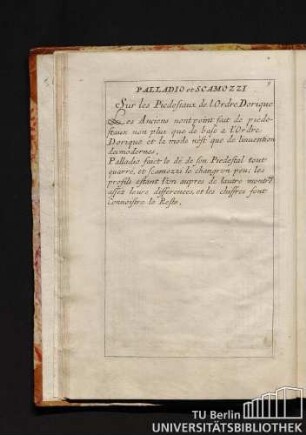 PALLADIO et SCAMOZZI
Sur les Piedestaux de l'Ordre Dorique
Les Anciens nont point fait de piede-
staux non plus que de base a l'Ordre
Dorique et la mode nest que de linuention
des modernes,
Palladio faict le dé de son Piedestal tout
quarré, et scamozzi le change un peu, les
profils estant l'un aupres de lautre montrēt
assez leurs differences, et les chiffres font
connoistre le Reste.
TU Berlin
UNIVERSITÄTSBIBLIOTHEK